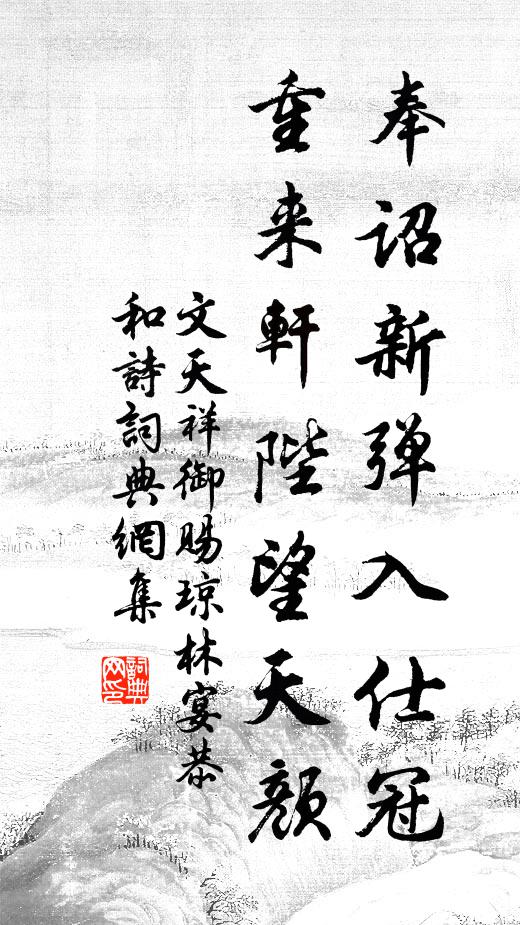 奉詔新弹入仕冠
重来軒陛望天顔
文天祥御賜琼林宴恭
和詩詞典網集
詞典網印